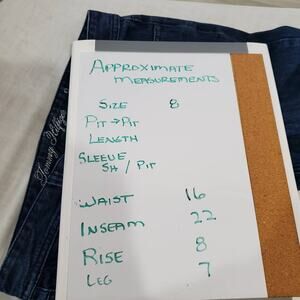 Approximate
Measurements
Size 8
Pit → Pit
Length
Sleeve
SH / Pit
Waist 16
Inseam 22
Rise 8
Leg 7
Tommy Hilfiger